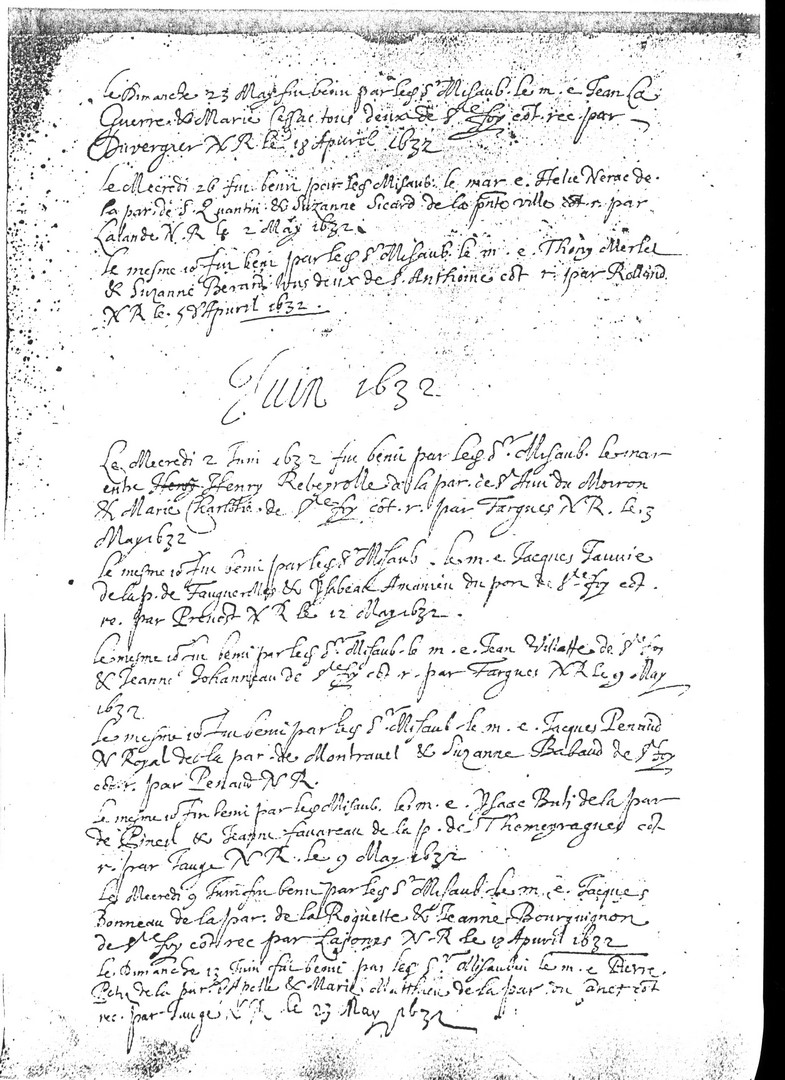 le Dimanche 23 May fut beni par led Sr Misaub. le m. e Jean La
Guerre & Marie Cessac tous deux de Ste foy cot. rec. par
Duvergier N R. le 18 Apuril 1632
le Mecredi 26 fut beni par led Misaub. le mar e. Helie Nerac de
la par. de S. Quantin & Suzanne Sicard de la pnte ville cot r. par
Lalande N. R le 2 May 1632
le mesme io fut beni par led Sr Misaub. le m. e. Thony Merlet
& Suzanne Berard tous deux de S. Anthoine cot r. par Rolland
N R le. 5 d'Apuril 1632.
Juin 1632
Le Mecredi 2 Juin 1632 fut beni par led Sr. Misaub. le mar
entre Henry Rebeyrolle de la par. de St Avi du Moiron
& Marie Charlotie de Ste foy cot. r. par Fargues N R. le 3
May 1632
le mesme io fut beni par led Sr Misaub. le m. e. Jacques
de la p. de Fauguerolles & Ysabeau Amanieu du port de Ste foy cot.
re. par Prevost N R le 12 May 1632.
le mesme io fut beni par led Sr. Misaub. le m. e. Jean Villatte de Ste foy
& Jeanne Johanneau de Ste foy cot r. par Fargues N R le 9 May
1632
le mesme io fut beni par led Sr Misaub. le m. e. Jacques Penaud
N Royal de la par. de Montravel & Suzanne Babaud de Ste foy
cot r. par Penaud N R.
le mesme io fut beni par led Misaub. le m. e. Ysaac de la par
de Pineil & Jeanne favareau de la p. de Thomeyragues cot
r. par Jauge N R. le 9 May 1632
Le Mecredi 9 Juin fut beni par led Sr Misaub. le m. e. Jacques
Bonneau de la par. de la Roquette & Jeanne Bourguignon
de Ste foy cot rec par Lajonies N R le 18 Apuril 1632
le Dimanche 13 Juin fut beni par led Sr Misaubin le m. e Pierre
Petit de la par. & Marie Matthieu de la par cot
rec. par Jauge N R. le 23 May 1632